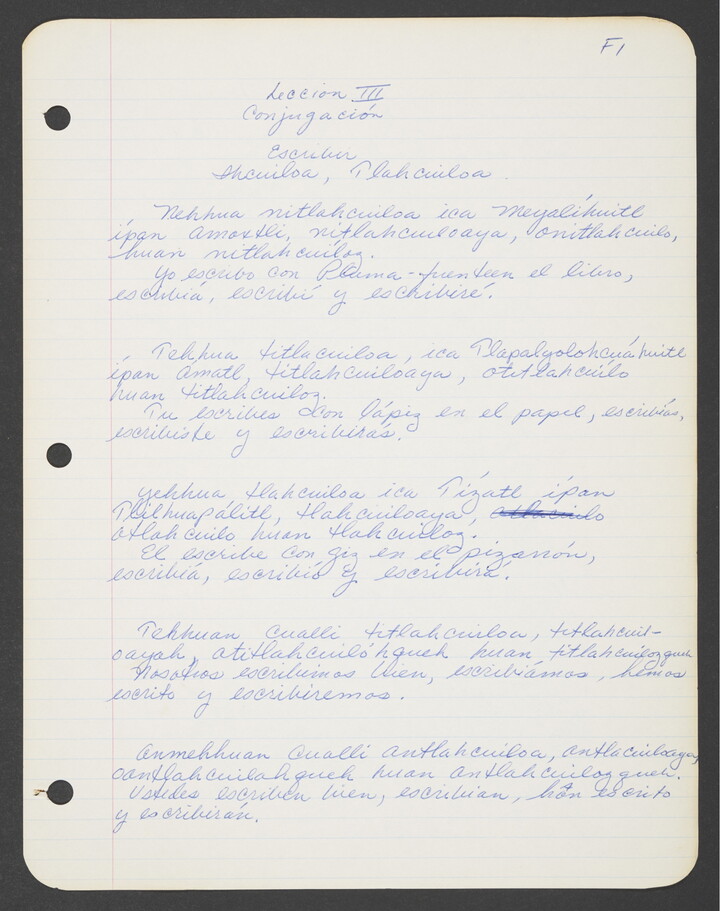 F1
Leccion III
Conjugación
Escribir
Ihcuiloa, Tlahcuiloa.
Nehhua nitlahcuiloa ica Meyalíhuitl
ípan Amoxtli, nitlahcuiloaya, onitlahcuilo,
huan nitlahcuíloz.
Yo escribo con Pluma-fuente en el libro,
escribiá, escribí y escribiré.
Tehhua titlacuiloa, ica Tlapalyolohcuáhuitl
ípan Amatl, titlahcuiloaya, otitlahcuílo
huan titlahcuiloz.
Tu escribes con lápiz en el papel, escribiás,
escribiste y escribirás.
Yehhua tlahcuiloa ica Tízatl ípan
Tlilhuapálitl, tlahcuiloaya,
otlahcuilo huan tlahcuiloz.
El escribe con giz en el pizarrón,
escribiá, escribío y escribirá.
Tehhuan Cualli titlahcuiloa, titlahcuil-
oayah, otitlahcuilóhqueh huan titlahcuilozqueh
Nosotros escribimos bien, escribiámos, hémos
escrito y escribiremos.
Anmehhuan Cualli antlahcuiloa, antlacuiloaya,
oantlahcuilohqueh huan antlahcuilozqueh.
Ustedes escriben bien, escribian, hán escrito
y escribirán.